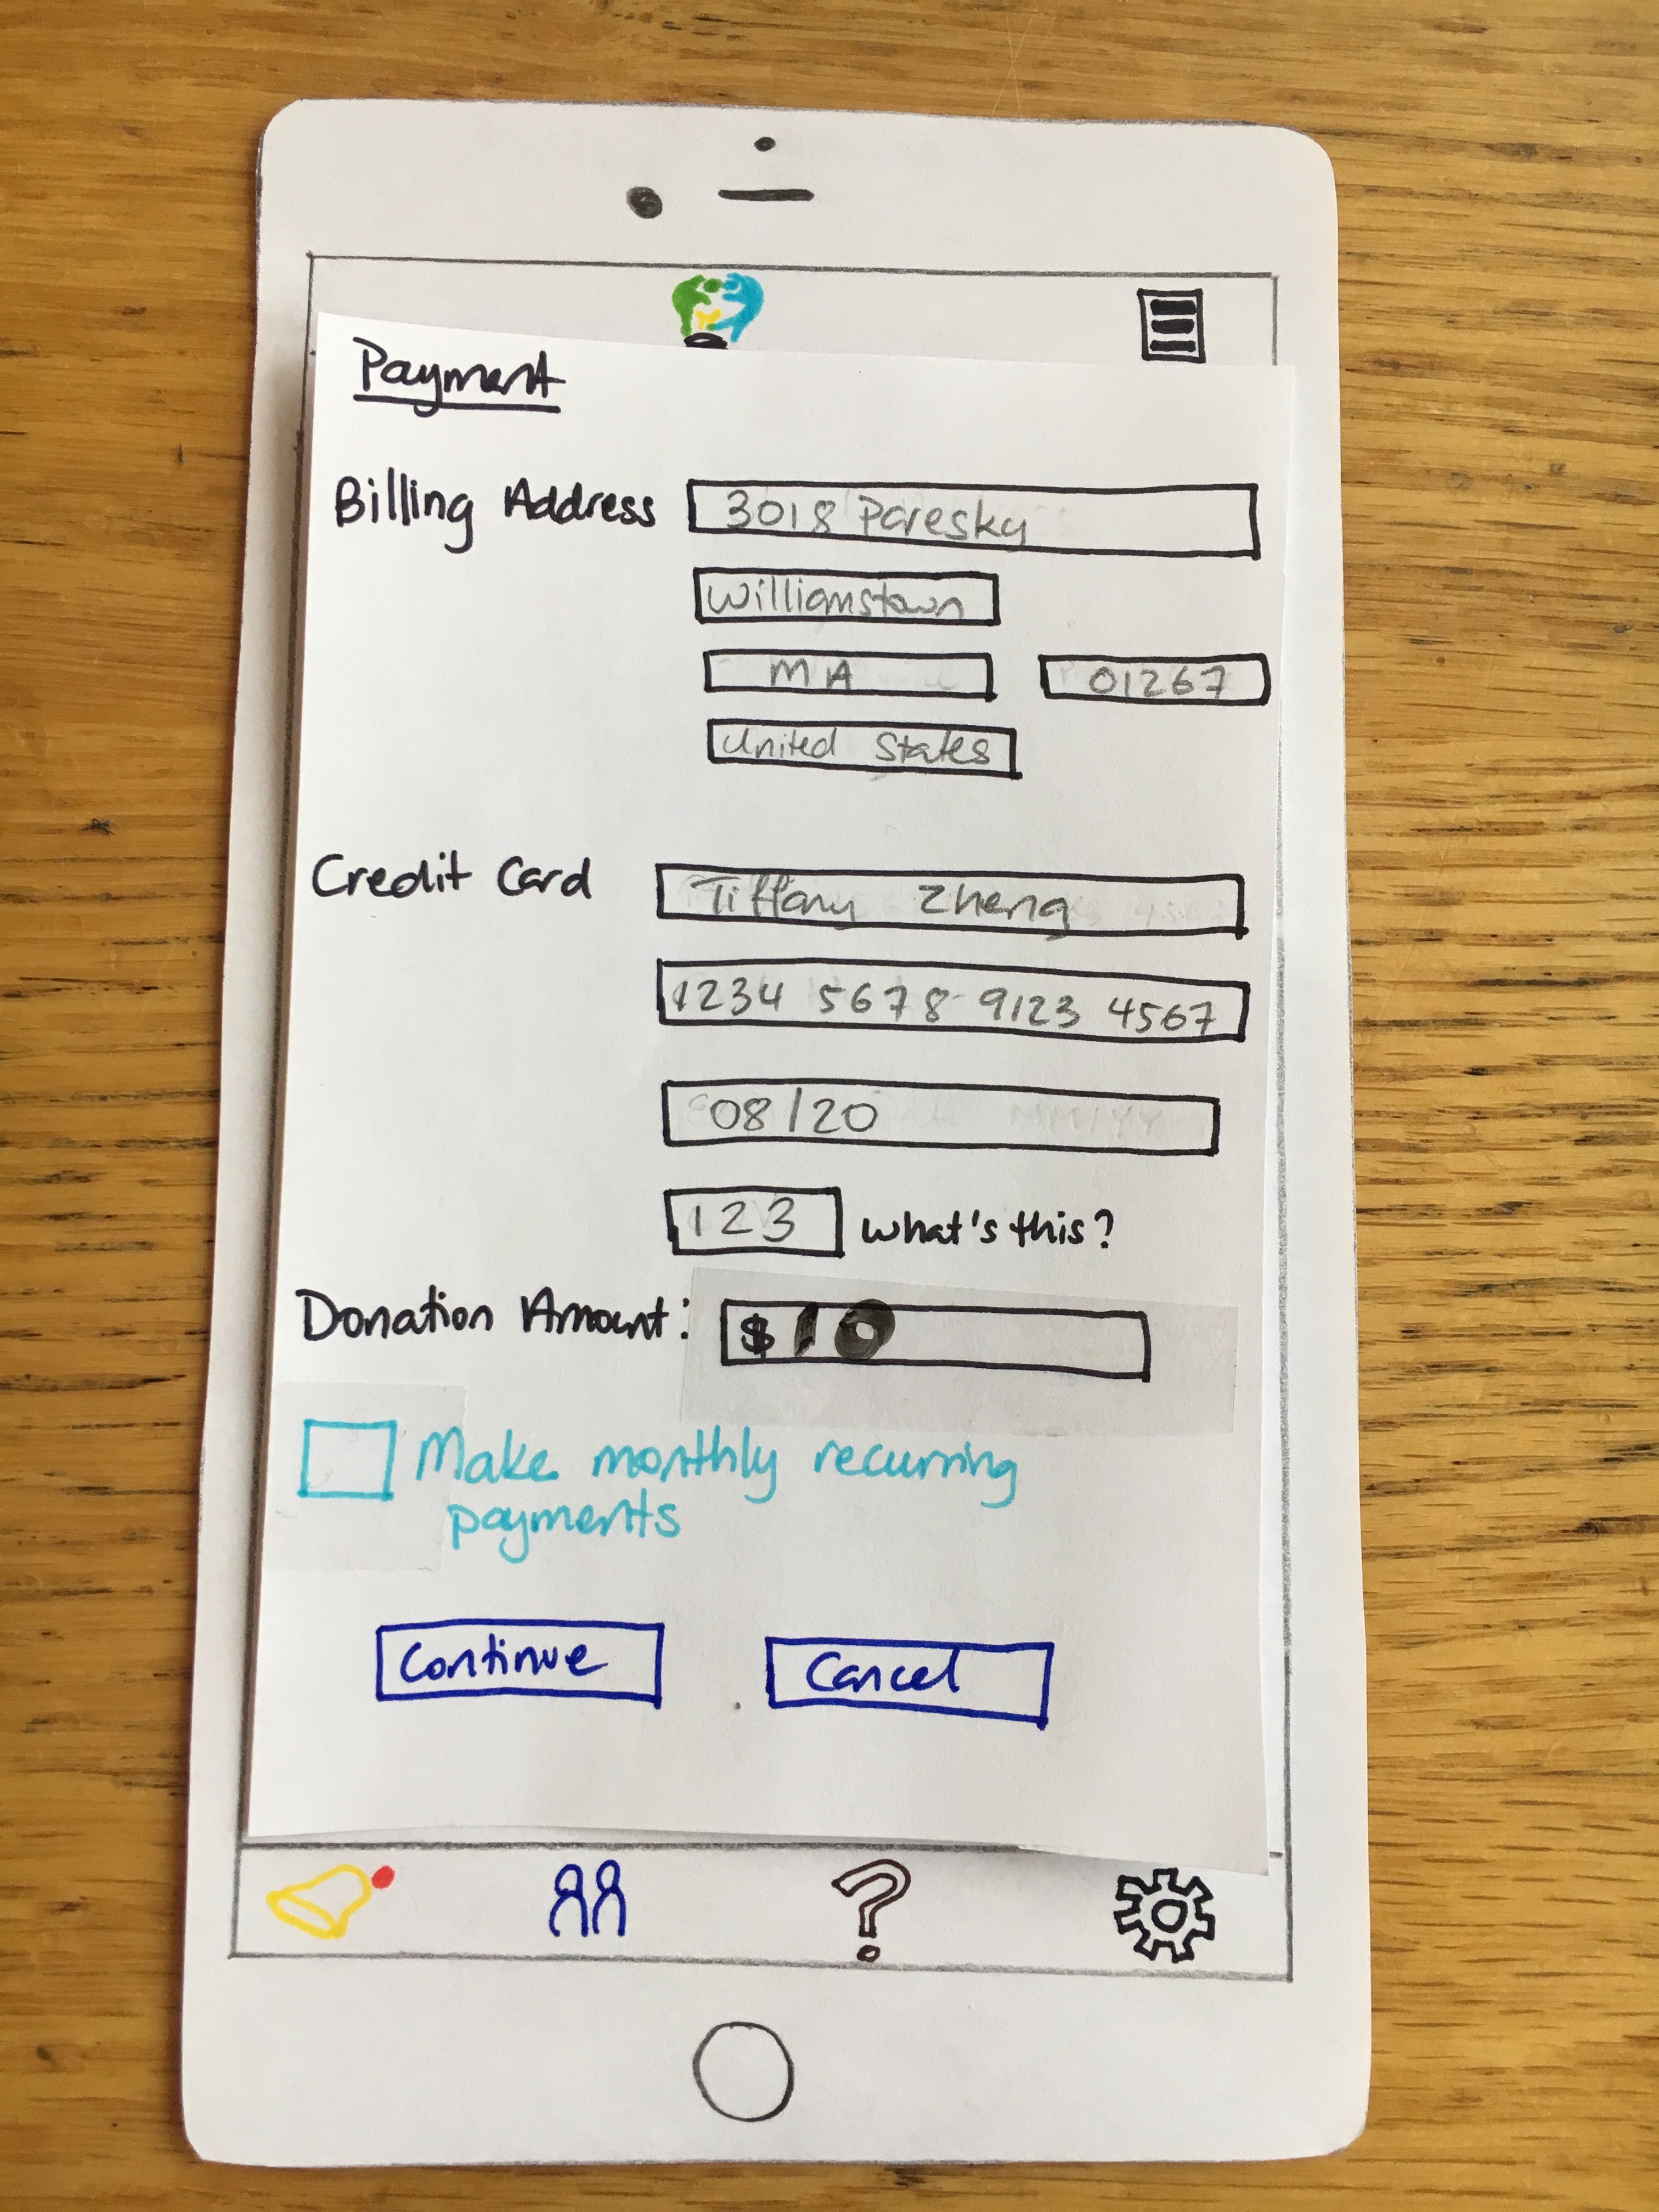 Payment
Billing Address 3018 Paresky
Williamstown
MA 01267
United States
Credit Card Tiffany Zheng
1234 5678 9123 4567
08/20 MM/YY
123 what's this?
Donation Amount: $10
Make monthly recurring
payments
Continue Cancel
?